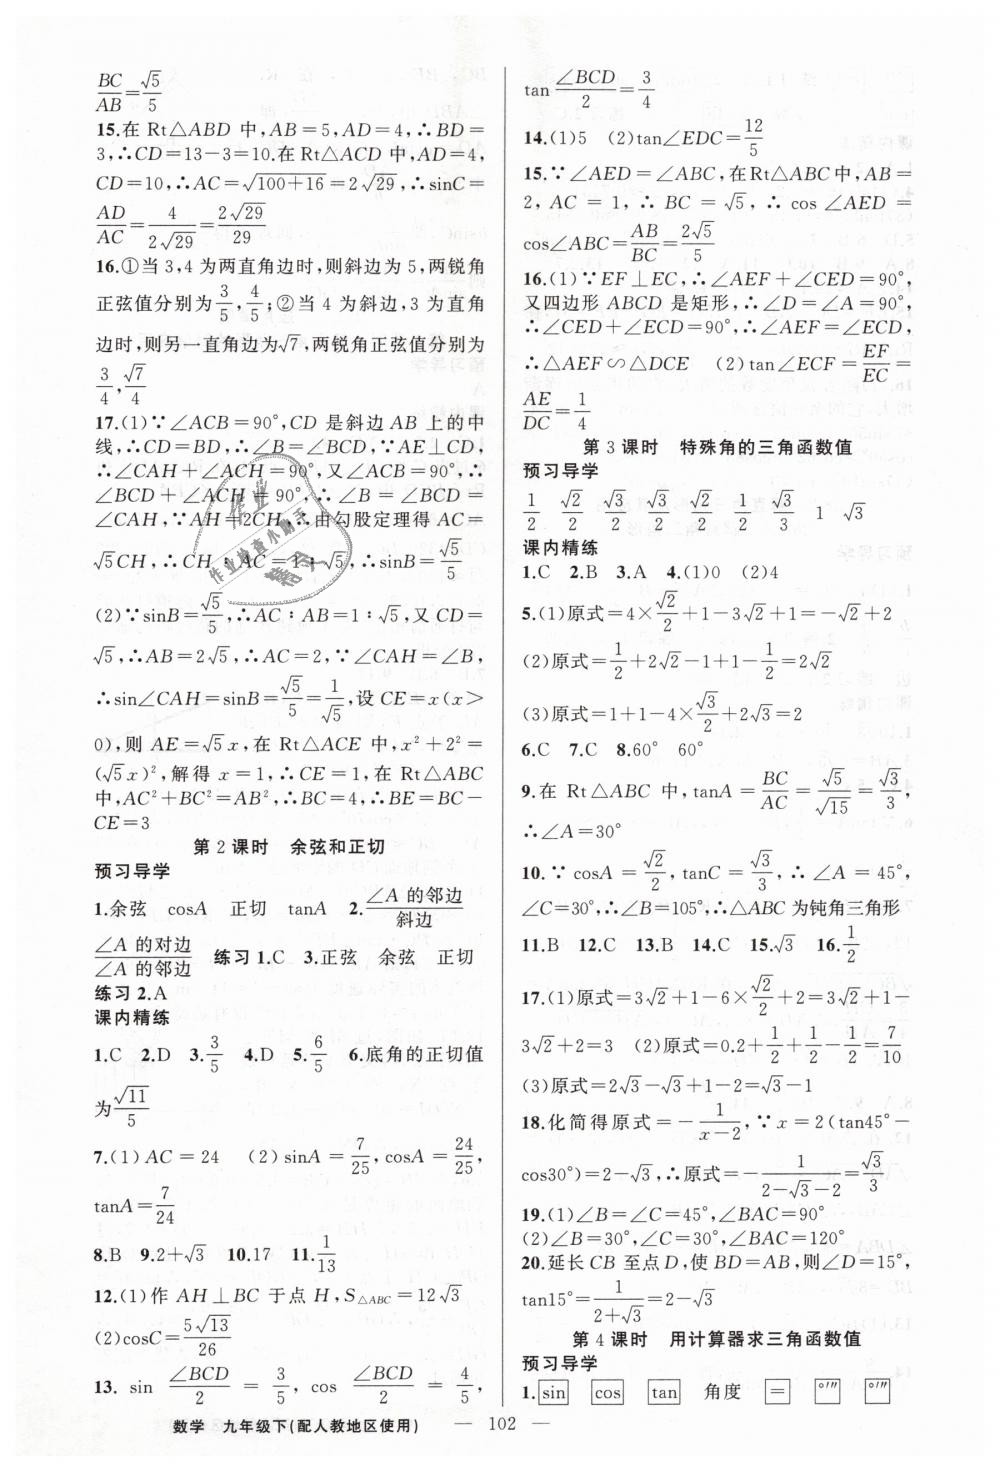 BC/AB=√5/5
15.在 Rt△ABD 中,AB=5,AD=4,∴BD=
3,∴CD=13-3=10.在Rt△ACD 中,AD=4,
CD=10,∴AC=√(100+16)=2√29,∴sinC=
AD/AC=4/(2√29)=2√29/29
16.①当3,4为两直角边时,则斜边为5,两锐角
正弦值分别为3/5,4/5;②当4为斜边,3为直角
边时,则另一直角边为√7,两锐角正弦值分别为
3/4,√7/4
17.(1)∵∠ACB=90°,CD是斜边AB上的中
线,∴CD=BD,∴∠B=∠BCD,∵AE⊥CD,
∴∠CAH+∠ACH=90°,又∠ACB=90°,∴
∠BCD+∠ACH=90°,∴∠B=∠BCD=
∠CAH,∵AH=2CH,∴由勾股定理得AC=
√5CH,∴CH∶AC=1∶√5,∴sinB=√5/5
(2)∵sinB=√5/5,∴AC∶AB=1∶√5,又CD=
√5,∴AB=2√5,∴AC=2,∵∠CAH=∠B,
∴sin∠CAH=sinB=√5/5=1/√5,设CE=x(x>
0),则 AE=√5x,在 Rt△ACE 中,x²+2²=
(√5x)²,解得 x=1,∴CE=1,在 Rt△ABC
中,AC²+BC²=AB²,∴BC=4,∴BE=BC-
CE=3
第2课时 余弦和正切
预习导学
1.余弦 cosA 正切 tanA 2.∠A的邻边/斜边
∠A的对边/∠A的邻边 练习1.C 3.正弦 余弦 正切
练习2.A
课内精练
1.C 2.D 3.3/5 4.D 5.6/5 6.底角的正切值
为√11/5
7.(1)AC=24 (2)sinA=7/25,cosA=24/25,
tanA=7/24
8.B 9.2+√3 10.17 11.1/13
12.(1)作 AH⊥BC 于点 H,S△ABC=12√3
(2)cosC=5√13/26
13. sin ∠BCD/2 = 3/5, cos ∠BCD/2 = 4/5,
tan ∠BCD/2=3/4
14.(1)5 (2)tan∠EDC=12/5
15.∵∠AED=∠ABC,在Rt△ABC中,AB=
2, AC = 1, ∴ BC = √5, ∴ cos ∠AED =
cos∠ABC=AB/BC=2√5/5
16.(1)∵EF⊥EC,∴∠AEF+∠CED=90°,
又四边形 ABCD 是矩形,∴∠D=∠A=90°,
∴∠CED+∠ECD=90°,∴∠AEF=∠ECD,
∴△AEF∽△DCE (2)tan∠ECF=EF/EC=
AE/DC=1/4
第3课时 特殊角的三角函数值
预习导学
1/2 √2/2 √3/2 √3/2 √2/2 1/2 √3/3 1 √3
课内精练
1.C 2.B 3.A 4.(1)0 (2)4
5.(1)原式=4×√2/2+1-3√2+1=-√2+2
(2)原式=1/2+2√2-1+1-1/2=2√2
(3)原式=1+1-4×√3/2+2√3=2
6.C 7.C 8.60° 60°
9.在 Rt△ABC 中,tanA=BC/AC=√5/√15=√3/3,
∴∠A=30°
10.∵ cosA=√2/2,tanC=√3/3,∴∠A=45°,
∠C=30°,∴∠B=105°,∴△ABC为钝角三角形
11.B 12.C 13.B 14.C 15.√3 16.1/2
17.(1)原式=3√2+1-6×√2/2+2=3√2+1-
3√2+2=3 (2)原式=0.2+1/2+1/2-1/2=7/10
(3)原式=2√3-√3+1-2=√3-1
18.化简得原式=-1/(x-2),∵x=2(tan45°-
cos30°)=2-√3,∴原式=-1/(2-√3-2)=√3/3
19.(1)∠B=∠C=45°,∠BAC=90°
(2)∠B=30°,∠C=30°,∠BAC=120°
20.延长CB至点D,使BD=AB,则∠D=15°,
tan15°=1/(2+√3)=2-√3
第4课时 用计算器求三角函数值
预习导学
1.sin cos tan 角度 = °′″ °′″
数学 九年级下(配人教地区使用) — 102 —
作业
作业检查小助手
精灵